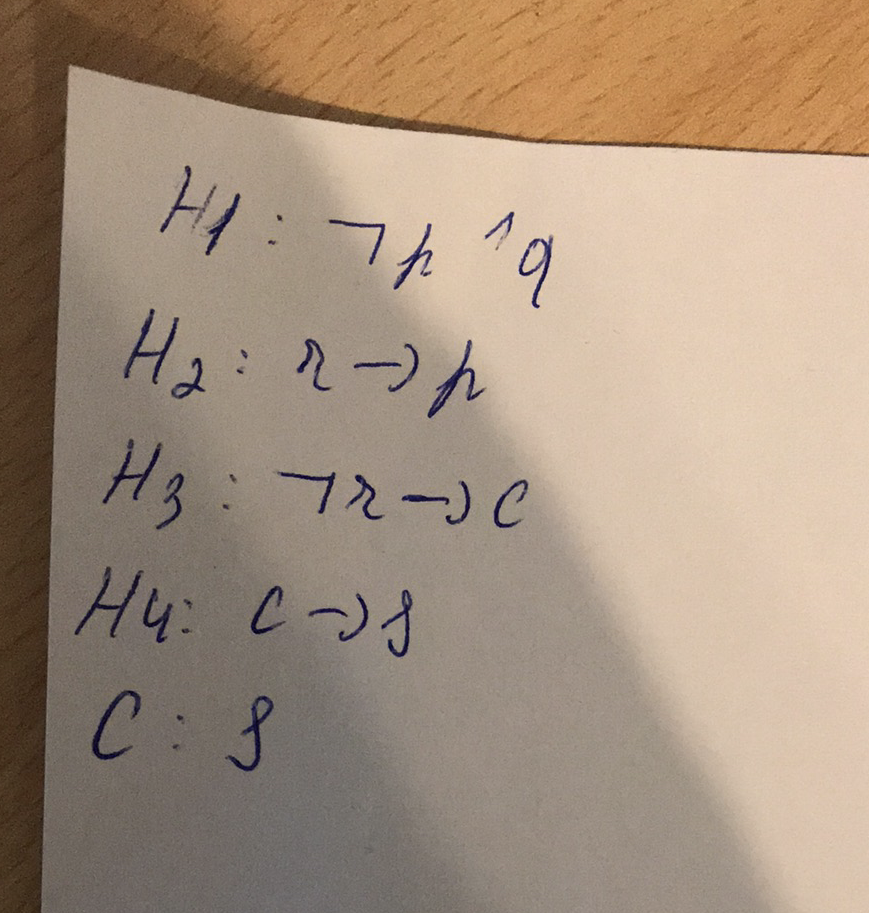 H1: ¬p ^ q
H2: r → p
H3: ¬r → c
H4: c → s
C: s